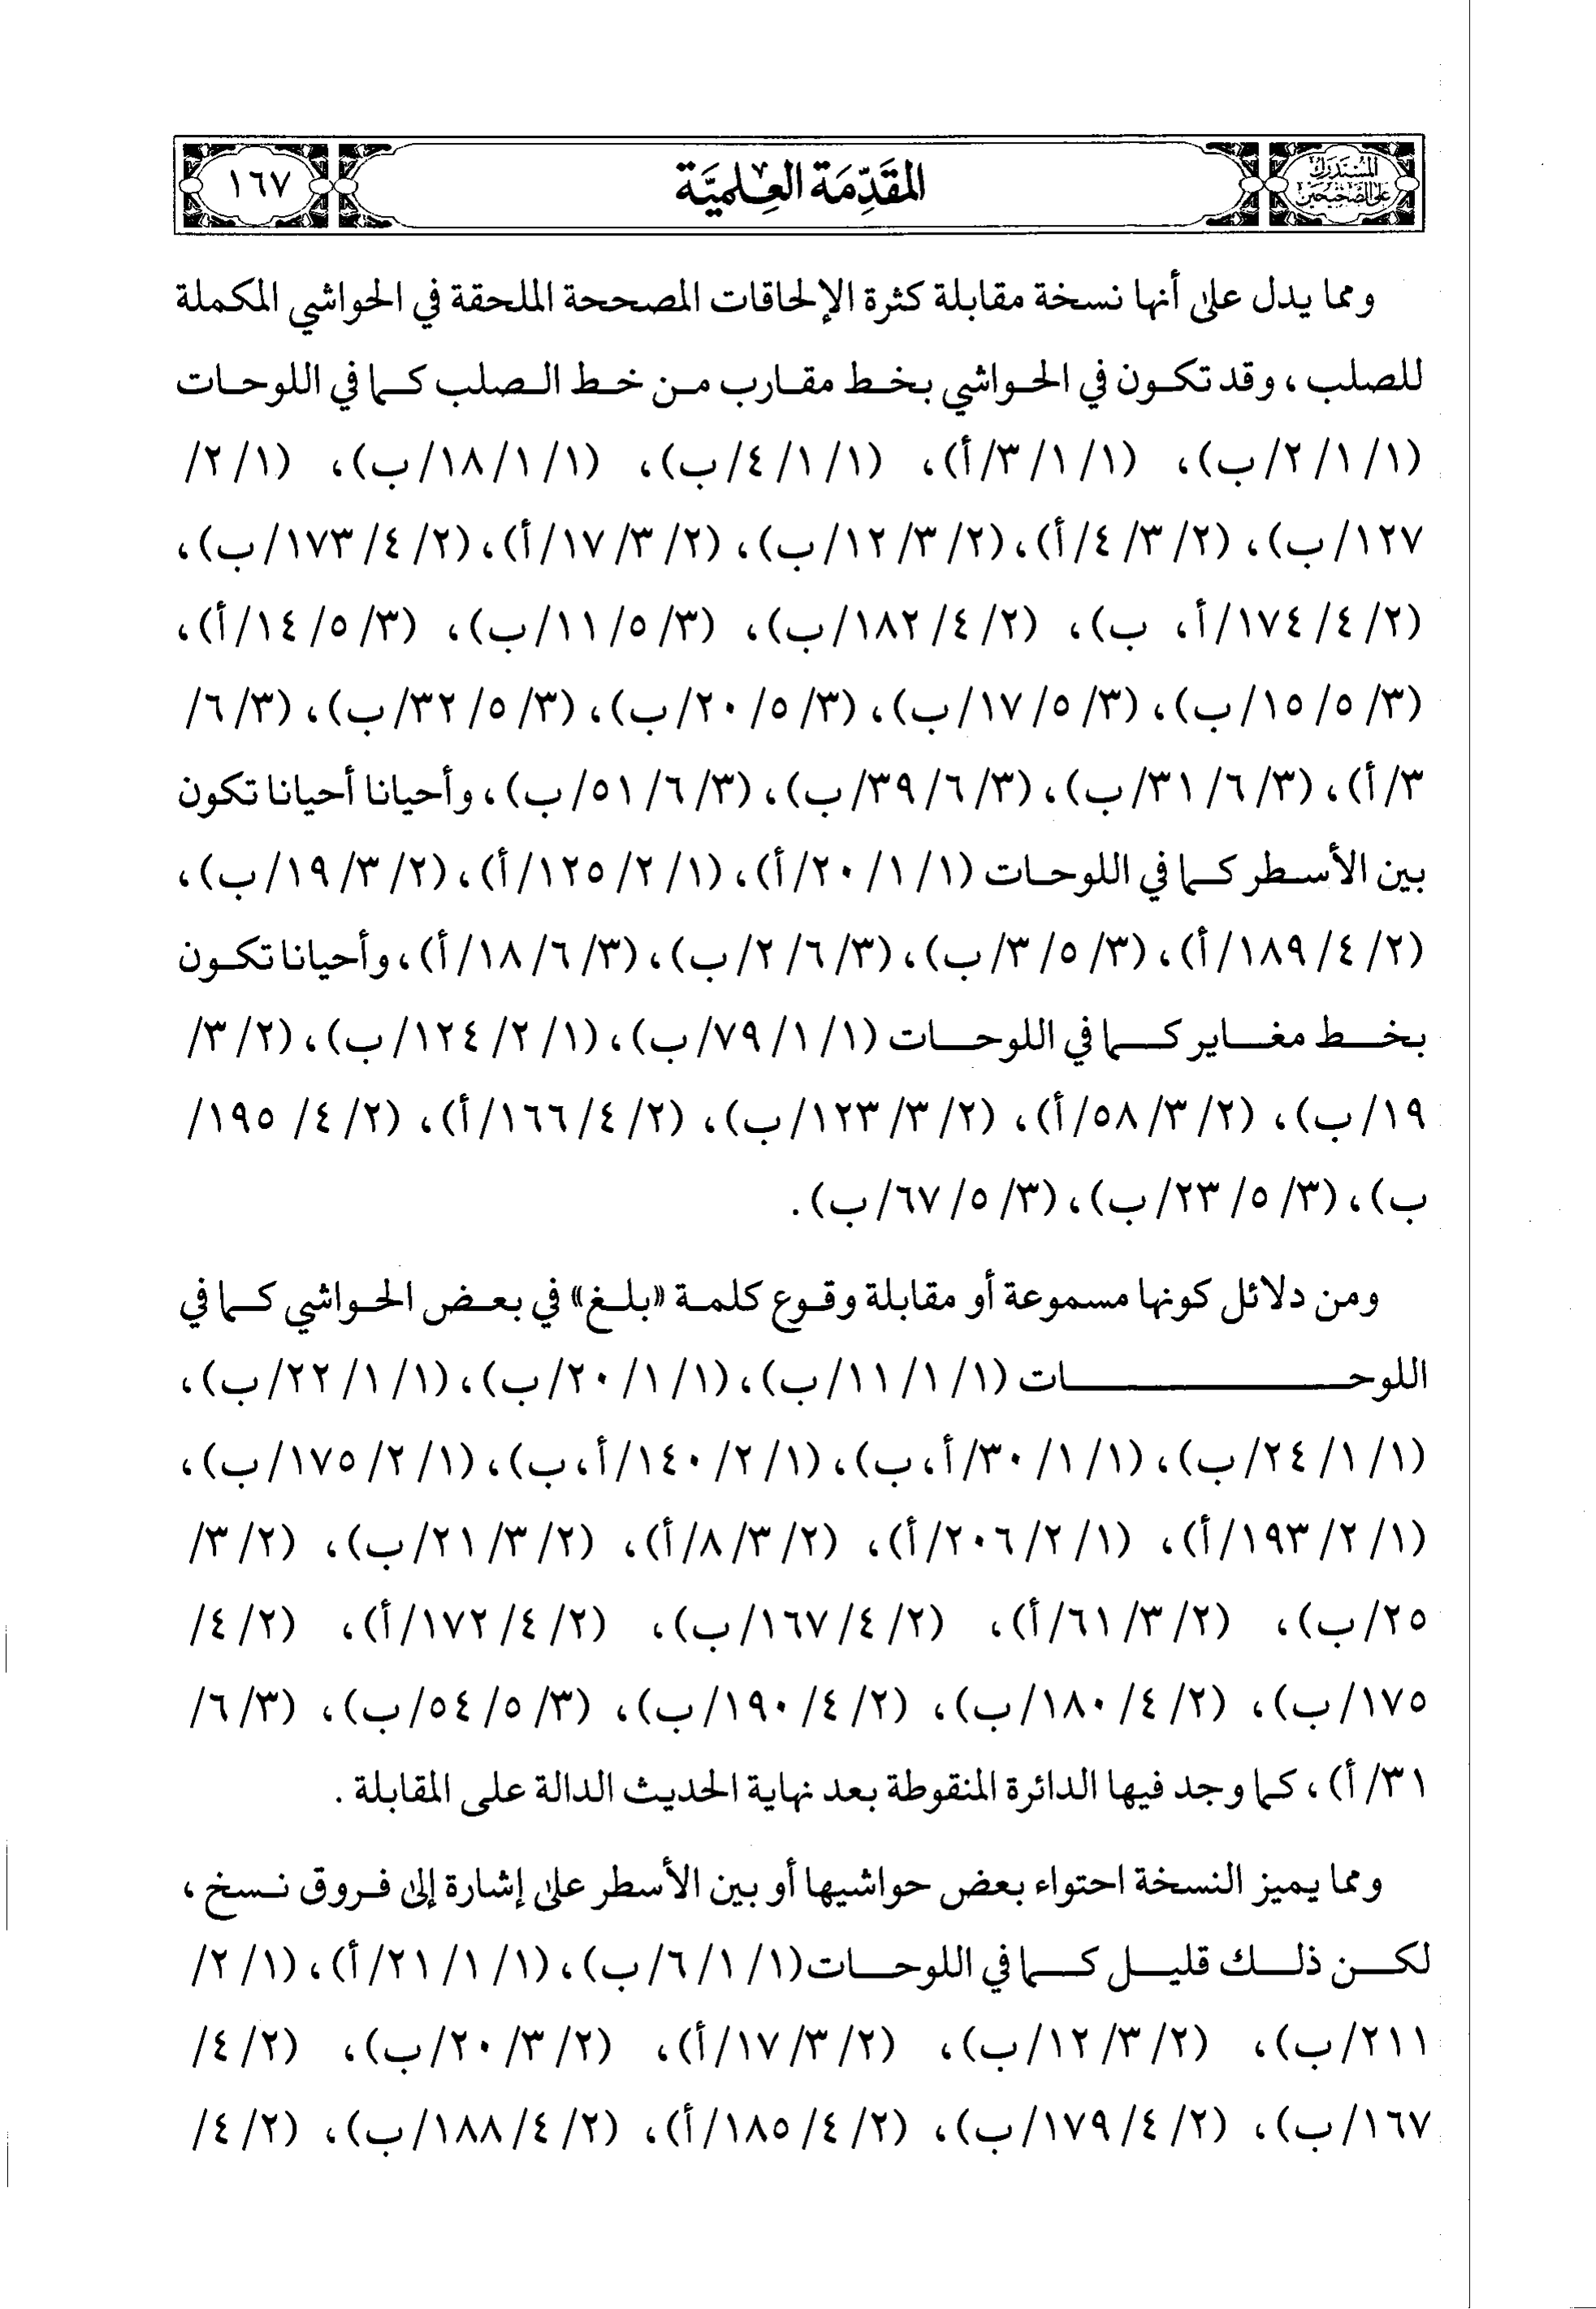 المستدرك على الصحيحين
المقَدِّمَة العِلميَّة
١٦٧
ومما يدل على أنها نسخة مقابلة كثرة الإلحاقات المصححة الملحقة في الحواشي المكملة
للصلب ، وقد تكون في الحواشي بخط مقارب من خط الصلب كما في اللوحات
(١/ ١/ ٢/ ب)، (١/ ١/ ٣/ أ)، (١/ ١/ ٤/ ب)، (١/ ١/ ١٨/ ب)، (١/ ٢/
١٢٧/ ب)، (٢/ ٣/ ٤/ أ)، (٢/ ٣/ ١٢/ ب)، (٢/ ٣/ ١٧/ أ)، (٢/ ٤/ ١٧٣/ ب)،
(٢/ ٤/ ١٧٤/ أ، ب)، (٢/ ٤/ ١٨٢/ ب)، (٣/ ٥/ ١١/ ب)، (٣/ ٥/ ١٤/ أ)،
(٣/ ٥/ ١٥/ ب)، (٣/ ٥/ ١٧/ ب)، (٣/ ٥/ ٢٠/ ب)، (٣/ ٥/ ٣٢/ ب)، (٣/ ٦/
٣/ أ)، (٣/ ٦/ ٣١/ ب)، (٣/ ٦/ ٣٩/ ب)، (٣/ ٦/ ٥١/ ب)، وأحيانا أحيانا تكون
بين الأسطر كما في اللوحات (١/ ١/ ٢٠/ أ)، (١/ ٢/ ١٢٥/ أ)، (٢/ ٣/ ١٩/ ب)،
(٢/ ٤/ ١٨٩/ أ)، (٣/ ٥/ ٣/ ب)، (٣/ ٦/ ٢/ ب)، (٣/ ٦/ ١٨/ أ)، وأحيانا تكون
بخط مغاير كما في اللوحات (١/ ١/ ٧٩/ ب)، (١/ ٢/ ١٢٤/ ب)، (٢/ ٣/
١٩/ ب)، (٢/ ٣/ ٥٨/ أ)، (٢/ ٣/ ١٢٣/ ب)، (٢/ ٤/ ١٦٦/ أ)، (٢/ ٤/ ١٩٥/
ب)، (٣/ ٥/ ٢٣/ ب)، (٣/ ٥/ ٦٧/ ب).
ومن دلائل كونها مسموعة أو مقابلة وقوع كلمة «بلغ» في بعض الحواشي كما في
اللوحات (١/ ١/ ١١/ ب)، (١/ ١/ ٢٠/ ب)، (١/ ١/ ٢٢/ ب)،
(١/ ١/ ٢٤/ ب)، (١/ ١/ ٣٠/ أ، ب)، (١/ ٢/ ١٤٠/ أ، ب)، (١/ ٢/ ١٧٥/ ب)،
(١/ ٢/ ١٩٣/ أ)، (١/ ٢/ ٢٠٦/ أ)، (٢/ ٣/ ٨/ أ)، (٢/ ٣/ ٢١/ ب)، (٢/ ٣/
٢٥/ ب)، (٢/ ٣/ ٦١/ أ)، (٢/ ٤/ ١٦٧/ ب)، (٢/ ٤/ ١٧٢/ أ)، (٢/ ٤/
١٧٥/ ب)، (٢/ ٤/ ١٨٠/ ب)، (٢/ ٤/ ١٩٠/ ب)، (٣/ ٥/ ٥٤/ ب)، (٣/ ٦/
٣١/ أ)، كما وجد فيها الدائرة المنقوطة بعد نهاية الحديث الدالة على المقابلة .
ومما يميز النسخة احتواء بعض حواشيها أو بين الأسطر على إشارة إلى فروق نسخ ،
لكن ذلك قليل كما في اللوحات (١/ ١/ ٦/ ب)، (١/ ١/ ٢١/ أ)، (١/ ٢/
٢١١/ ب)، (٢/ ٣/ ١٢/ ب)، (٢/ ٣/ ١٧/ أ)، (٢/ ٣/ ٢٠/ ب)، (٢/ ٤/
١٦٧/ ب)، (٢/ ٤/ ١٧٩/ ب)، (٢/ ٤/ ١٨٥/ أ)، (٢/ ٤/ ١٨٨/ ب)، (٢/ ٤/